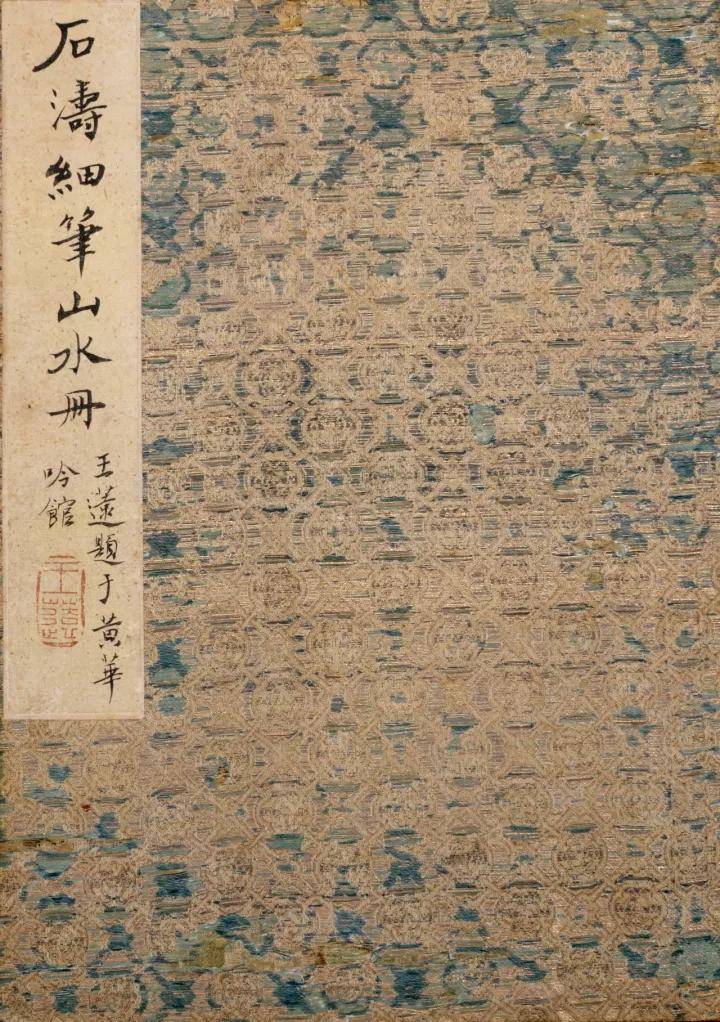 石濤細筆山水冊
王薳題于黄華
吟館
王薳